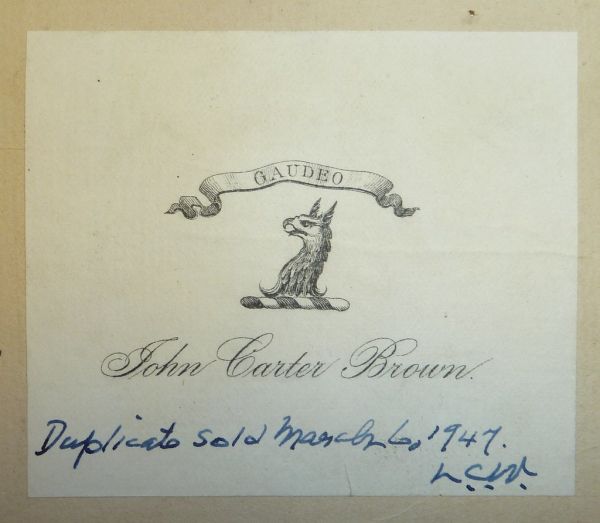 GAUDEO
John Carter Brown.
Duplicate sold March 6, 1947.
L.C.W.